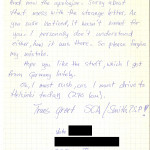 had sew the apologie. Sorry about
that mess with the strange letter. As
you note noticed, it hasn't meant for
you. I personally don't understand
either, how it was there. So please forgive
my mistake.
Hope you like the stuff, which I get
from Germany lately.
Ok, I must rush, cos I must drive to
Helsinki today (270 km).
Yours great SCA/